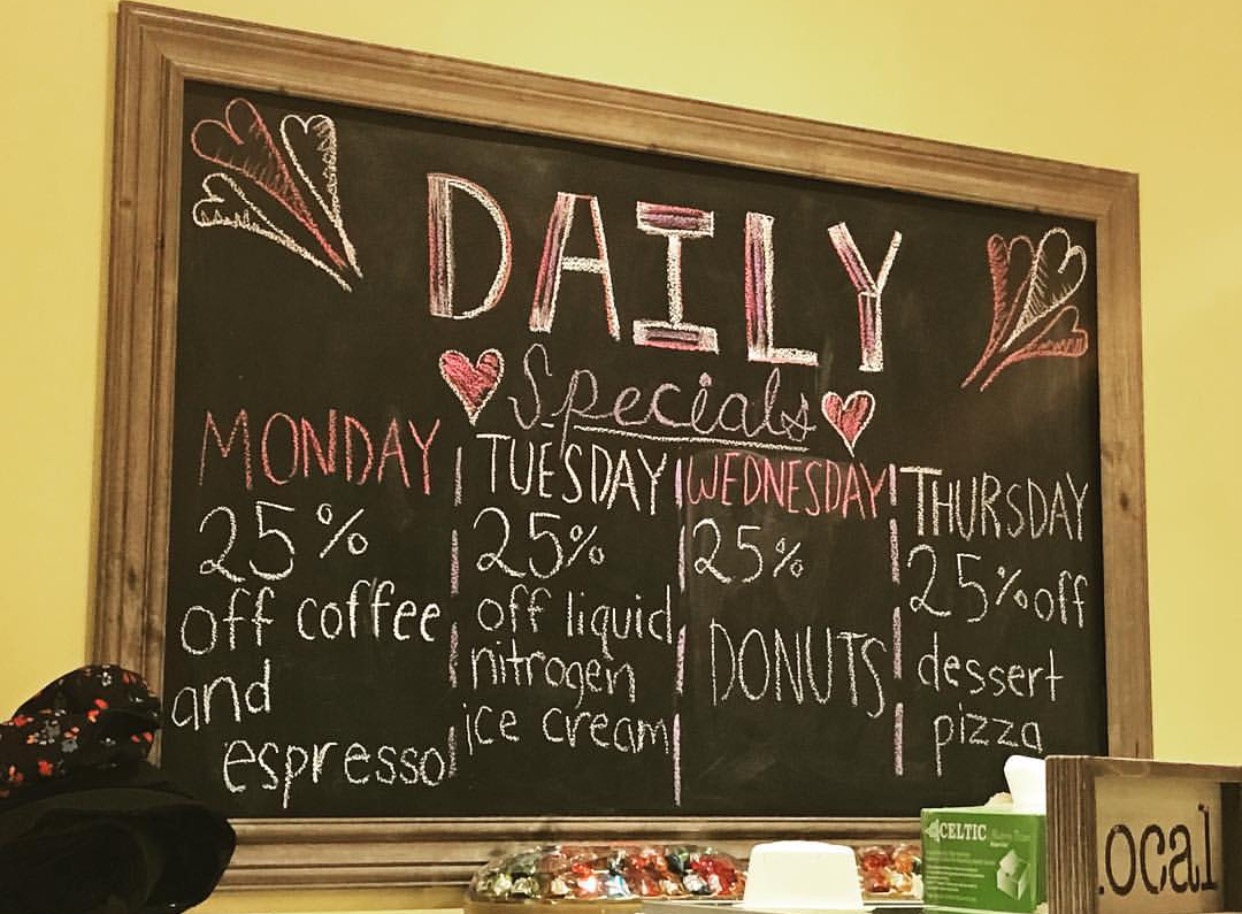 DAILY
Specials
MONDAY
25%
off coffee
and
espresso
TUESDAY
25%
off liquid
nitrogen
ice cream
WEDNESDAY
25%
DONUTS
THURSDAY
25% off
dessert
pizza
CELTIC
ocal